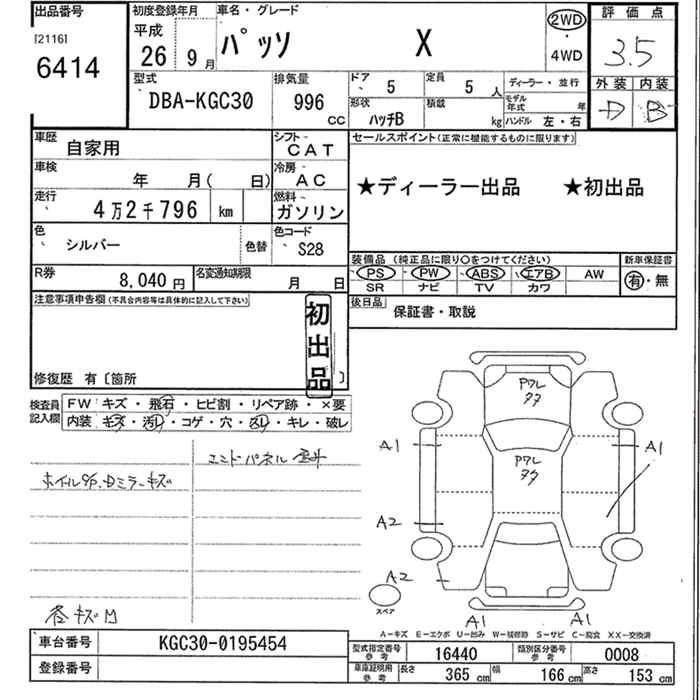 出品番号
[2116]
6414
初度登録年月
平成
26 9月
車名・グレード
パッソ X
2WD
・
4WD
評価点
3.5
外装 内装
D B
型式
DBA-KGC30
排気量
996
CC
ドア
5
定員
5 人
ディーラー・並行
形状
ハッチB
積載
kg
モデル年式 年
ハンドル 左・右
車歴
自家用
シフト
CAT
車検
年 月( 日)
冷房
AC
走行
4万2千796 km
燃料
ガソリン
色
シルバー
色替
色コード
S28
R券
8,040円
名変通知期限
月 日
セールスポイント(正常に機能するものに限ります)
★ディーラー出品 ★初出品
装備品 (純正品に限り○をつけてください)
新車保証書
PS PW ABS エアB AW
SR ナビ TV カワ
有・無
後日品
保証書・取説
注意事項申告欄(不具合内容等は具体的に記入して下さい)
初出品
修復歴 有〔箇所 〕
検査員記入欄
FW キズ・飛石・ヒビ割・リペア跡・×要
内装 キズ・汚レ・コゲ・穴・スレ・キレ・破レ
エンドパネル
ミラーキズ
PタL
PタL
A1
A1
A2
A2
スペア
A1
A1
A−キズ E−エクボ U−凹み W−補修跡 S−サビ C−腐食 XX−交換済
車台番号
KGC30-0195454
登録番号
型式指定番号
参考
16440
類別区分番号
参考
0008
車庫証明用
参考
長さ 365 cm
幅 166 cm
高さ 153 cm